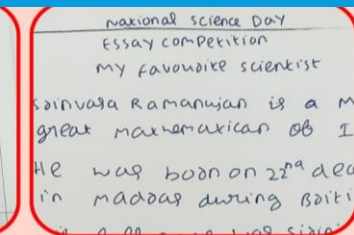 National Science Day
Essay competition
My favouoite scientist
Soinvasa Ramanujan is a M
great mathematican ob I
He was boon on 22nd dec
in madoas during Boiti